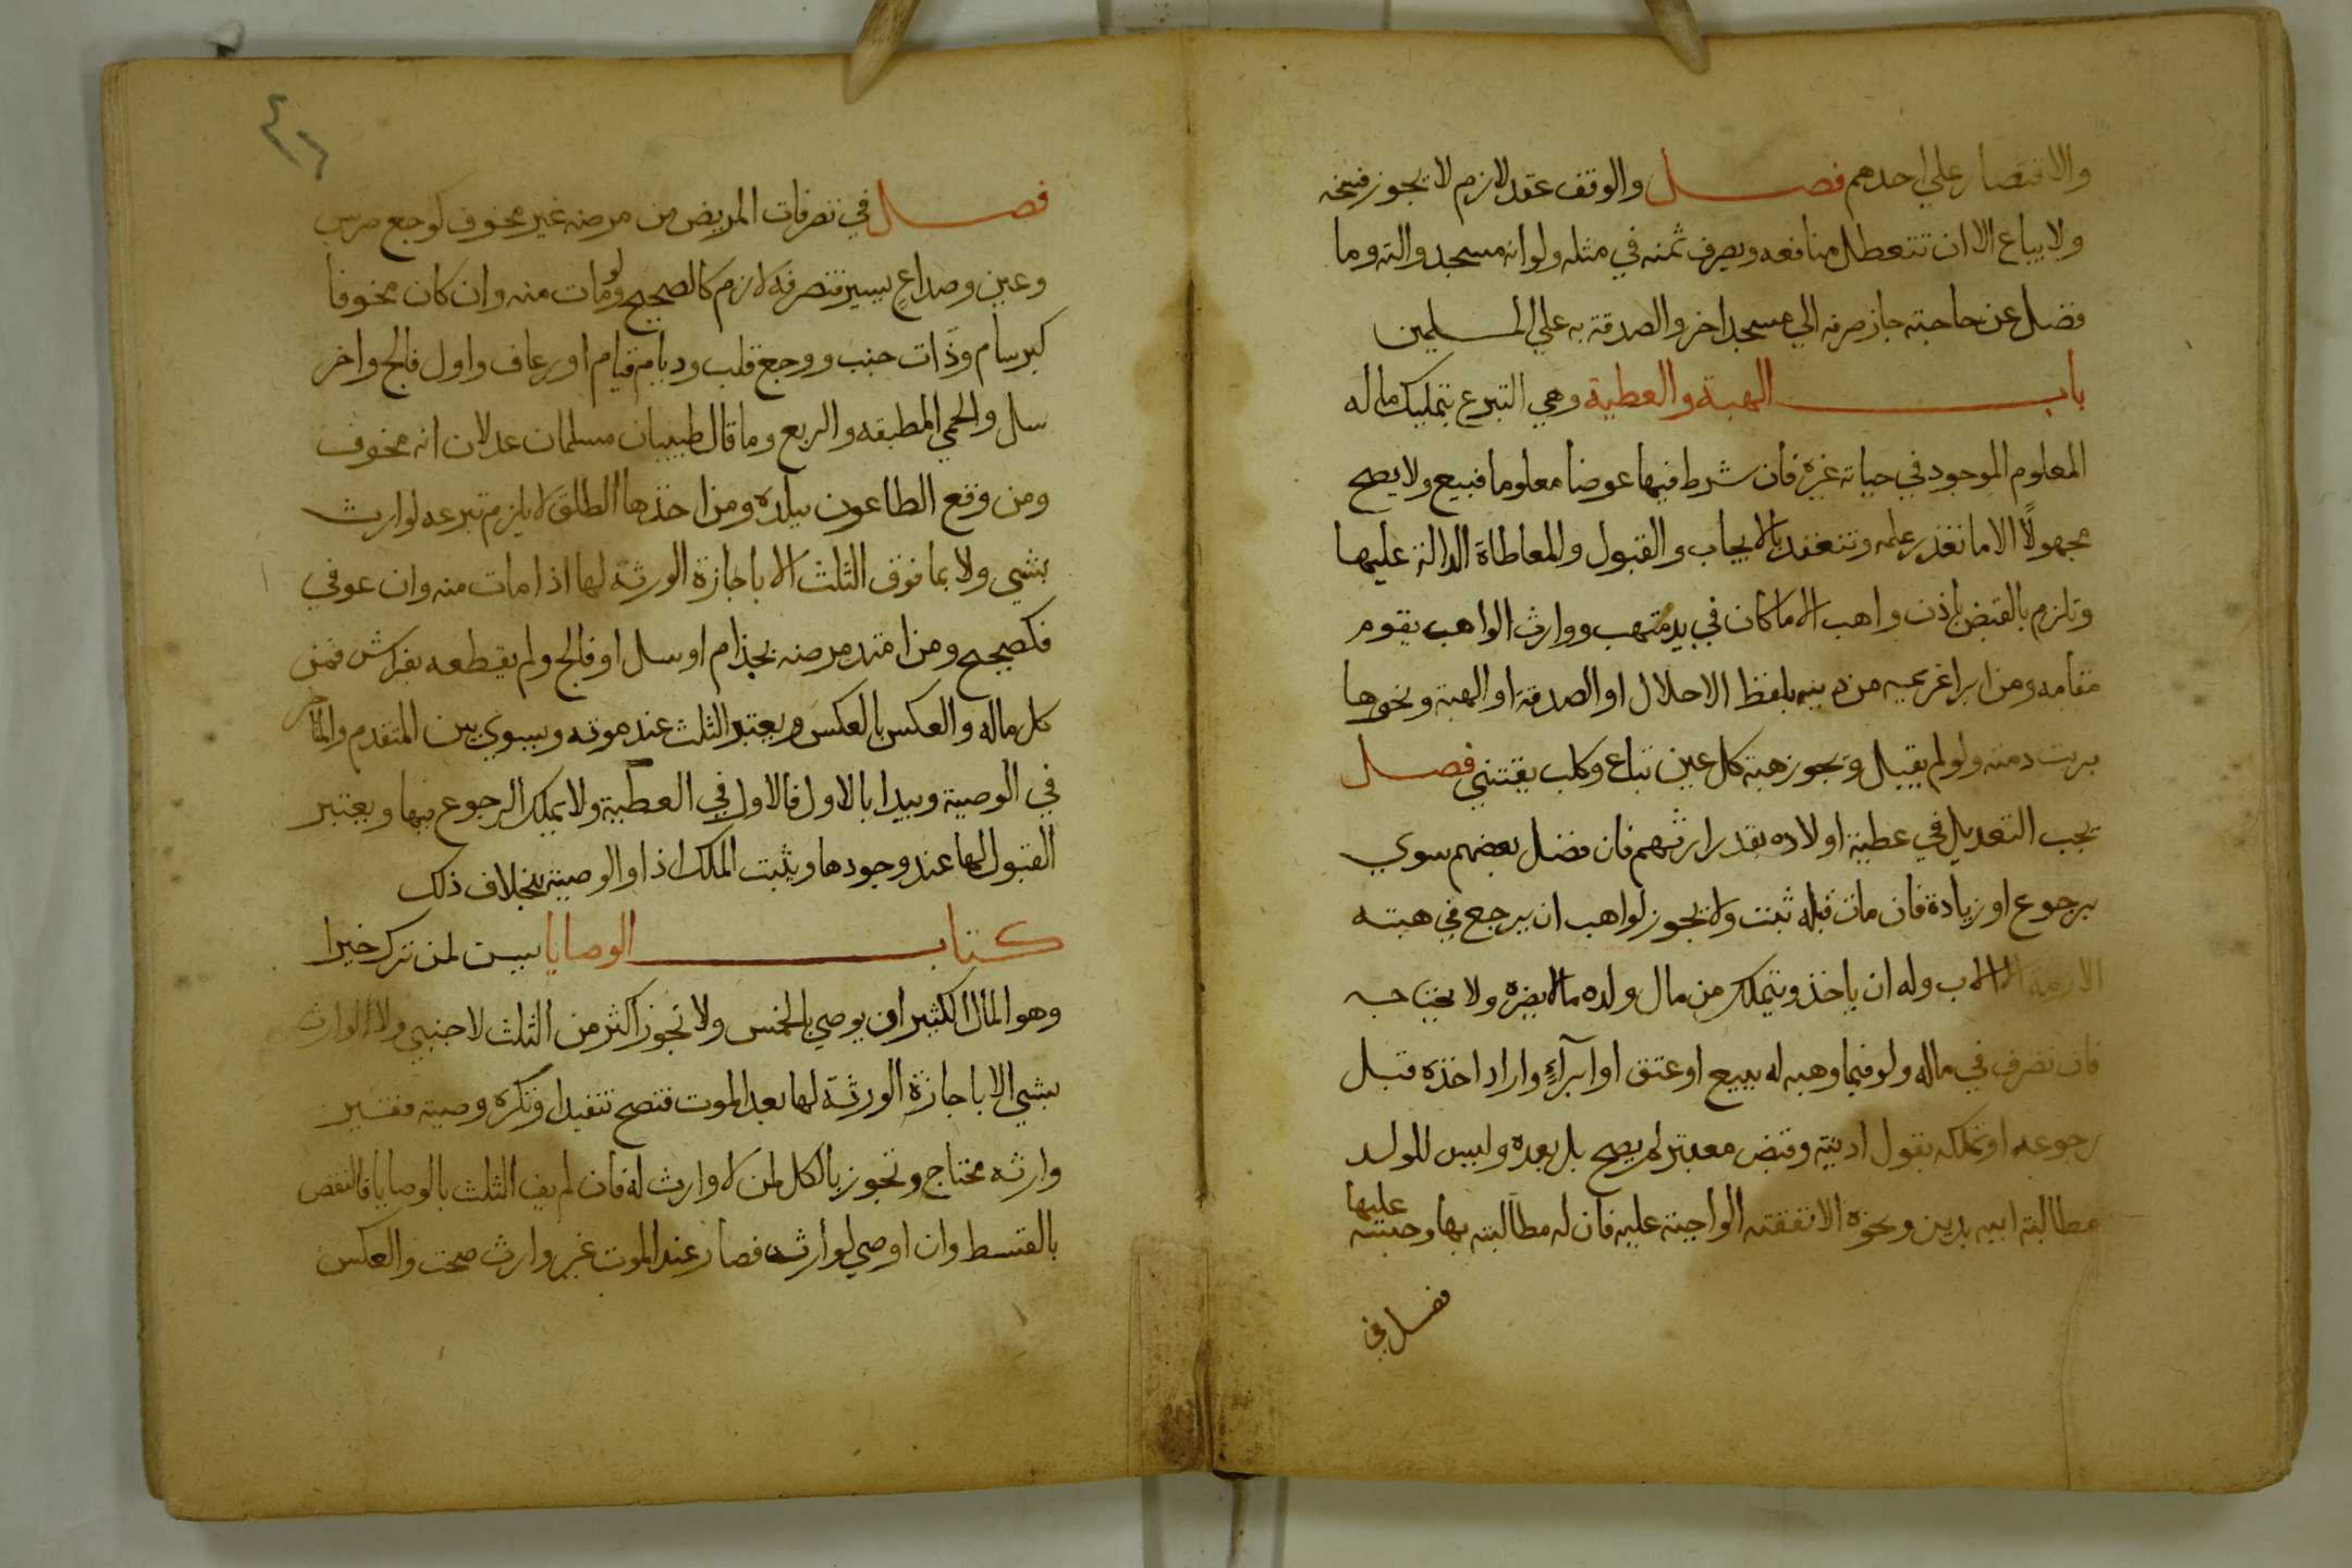 والاقتصار علي احدهم فصل والوقف عقد لازم لا يجوز فسخه
ولا يباع الا ان تتعطل منافعه ويصرف ثمنه في مثله ولو انه مسجد والته وما
فضل عن حاجته جاز صرفه الي مسجد اخر والصدقة به علي المسلمين
باب الهبة والعطية وهي التبرع بتمليك ماله
المعلوم الموجود في حياته غيره فان شرط فيها عوضا معلوما فبيع ولا يصح
مجهولًا الا ما تعذر علمه وتنعقد بالايجاب والقبول والمعاطاة الدالة عليها
وتلزم بالقبض باذن واهب الا ما كان في يد متهب ووارث الواهب يقوم
مقامه ومن ابرا غريمه من دينه بلفظ الاحلال او الصدقة او الهبة ونحوها
بريت دمته ولو لم يقبل وتجوز هبة كل عين تباع وكلب يقتني فصل
يجب التعديل في عطية اولاده بقدر ارثهم فان فضل بعضهم سوي
برجوع او زيادة فان مات قبله ثبتت ولا يجوز لواهب ان يرجع في هبته
الازمة الا الاب وله ان ياخذ ويتملك من مال ولده ما لا يضره ولا يحتاجه
فان تصرف في ماله ولو فيما وهبه له ببيع او عتق او ابرآءٍ واراد اخذه قبل
رجوعه او تملكه بقول او نية وقبض معتبر لم يصح بل بعده وليس للولد
مطالبة ابيه بدين ونحوه الا نفقته الواجبة عليه فان له مطالبته بها وحبسه عليها
فصل في
٤٦
فصل في تصرفات المريض من مرضه غير مخوف كوجع ضرس
وعين وصداعٍ يسير فتصرفه لازم كالصحيح ولو مات منه وان كان مخوفا
كبرسام وذات جنب ووجع قلب ودوام قيام او رعاف واول فالج واخر
سل والحمي المطبقه والربع وما قال طبيبان مسلمان عدلان انه مخوف
ومن وقع الطاعون ببلده ومن اخذها الطلق لا يلزم تبرعه لوارث
بشي ولا بما فوق الثلث الا باجازة الورثة لها اذا مات منه وان عوفي
فكصحيح ومن امتد مرضه بجذام او سل او فالج ولم يقطعه بفراش فمن
كل ماله والعكس بالعكس ويعتبر الثلث عند موته ويسوي بين المتقدم والمتاخر
في الوصية ويبدا بالاول فالاول في العطية ولا يملك الرجوع فيها ويعتبر
القبول لها عند وجودها ويثبت الملك اذا والوصية بخلاف ذلك
كتاب الوصايا يسن لمن ترك خيرا
وهو المال الكثير ان يوصي بالخمس ولا تجوز اكثر من الثلث لاجنبي ولا لوارث
بشي الا باجازة الورثة لها بعد الموت فتصح تنفيدا وتكره وصية فقير
وارثه محتاج وتجوز بالكل لمن لا وارث له فان لم يف الثلث بالوصايا فالنقص
بالقسط وان اوصي لوارثه فصار عند الموت غير وارث صحت والعكس